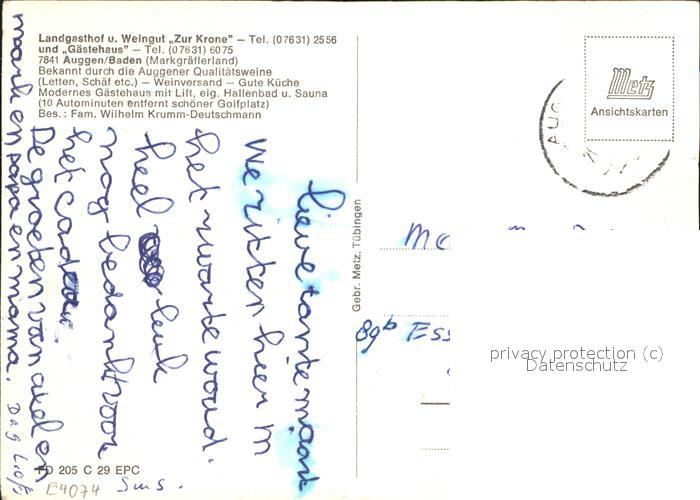 Landgasthof u. Weingut „Zur Krone" — Tel. (07631) 2556
und „Gästehaus" — Tel. (07631) 6075
7841 Auggen/Baden (Markgräflerland)
Bekannt durch die Auggener Qualitätsweine
(Letten, Schäf etc.) — Weinversand — Gute Küche
Modernes Gästehaus mit Lift, eig. Hallenbad u. Sauna
(10 Autominuten entfernt schöner Golfplatz)
Bes.: Fam. Wilhelm Krumm-Deutschmann
Metz
Ansichtskarten
AUG
Gebr. Metz, Tübingen
lieve tante
We zitten hier in
het zwarte woud.
heel leuk
nog bedankt voor
het cadeau.
De groeten van
mark en papa en mama. Dag
89b Ess
privacy protection (c)
Datenschutz
205 C 29 EPC
E4074